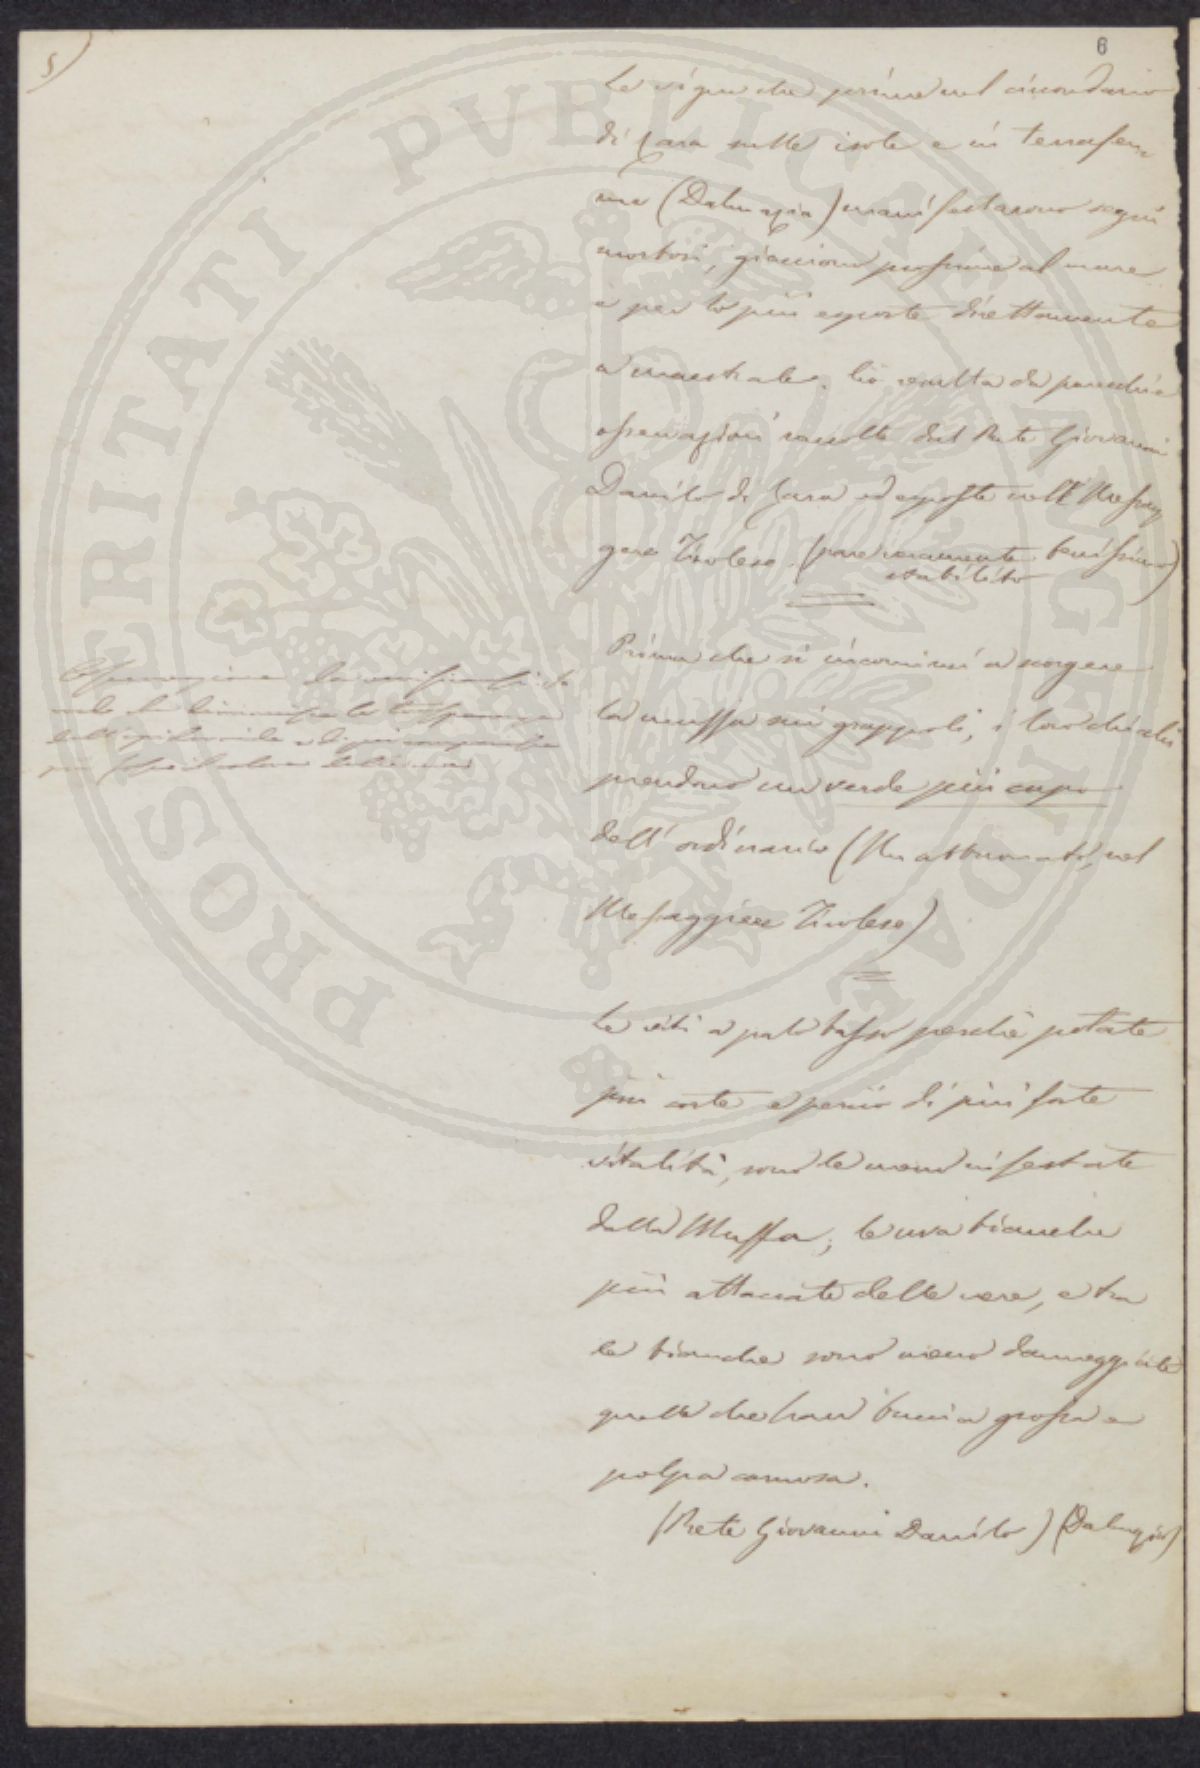 5)
6
Le vigne che prime nel circondario
di Zara sulle isole e in terrafer
ma (Dalmazia) manifestarono segni
morbosi, giacciono prossime al mare
e per lo più esposte direttamente
a maestrale. Ciò risulta da parecchie
osservazioni raccolte dal Prete Giovanni
Danilo di Zara ed esposte nell Messag
gere Tirolese. (pare veramente benissimo
stabilito)
Prima che si incominci a scorgere
la muffa sui grappoli, i loro
prendono un verde più cupo
dell'ordinario (Un abbuonato, nel
Messaggiere Tirolese)
Le viti a palo basso perchè potate
più corte e perciò di più forte
vitalità, sono le meno infestate
dalla Muffa; le uva bianche
più attaccate delle nere, e tra
le bianche sono meno danneggiate
quelle che han buccia grossa e
polpa carnosa.
(Prete Giovanni Danilo) (Dalmazia)
PROSPERITATI PUBLICAE AUGENDAE